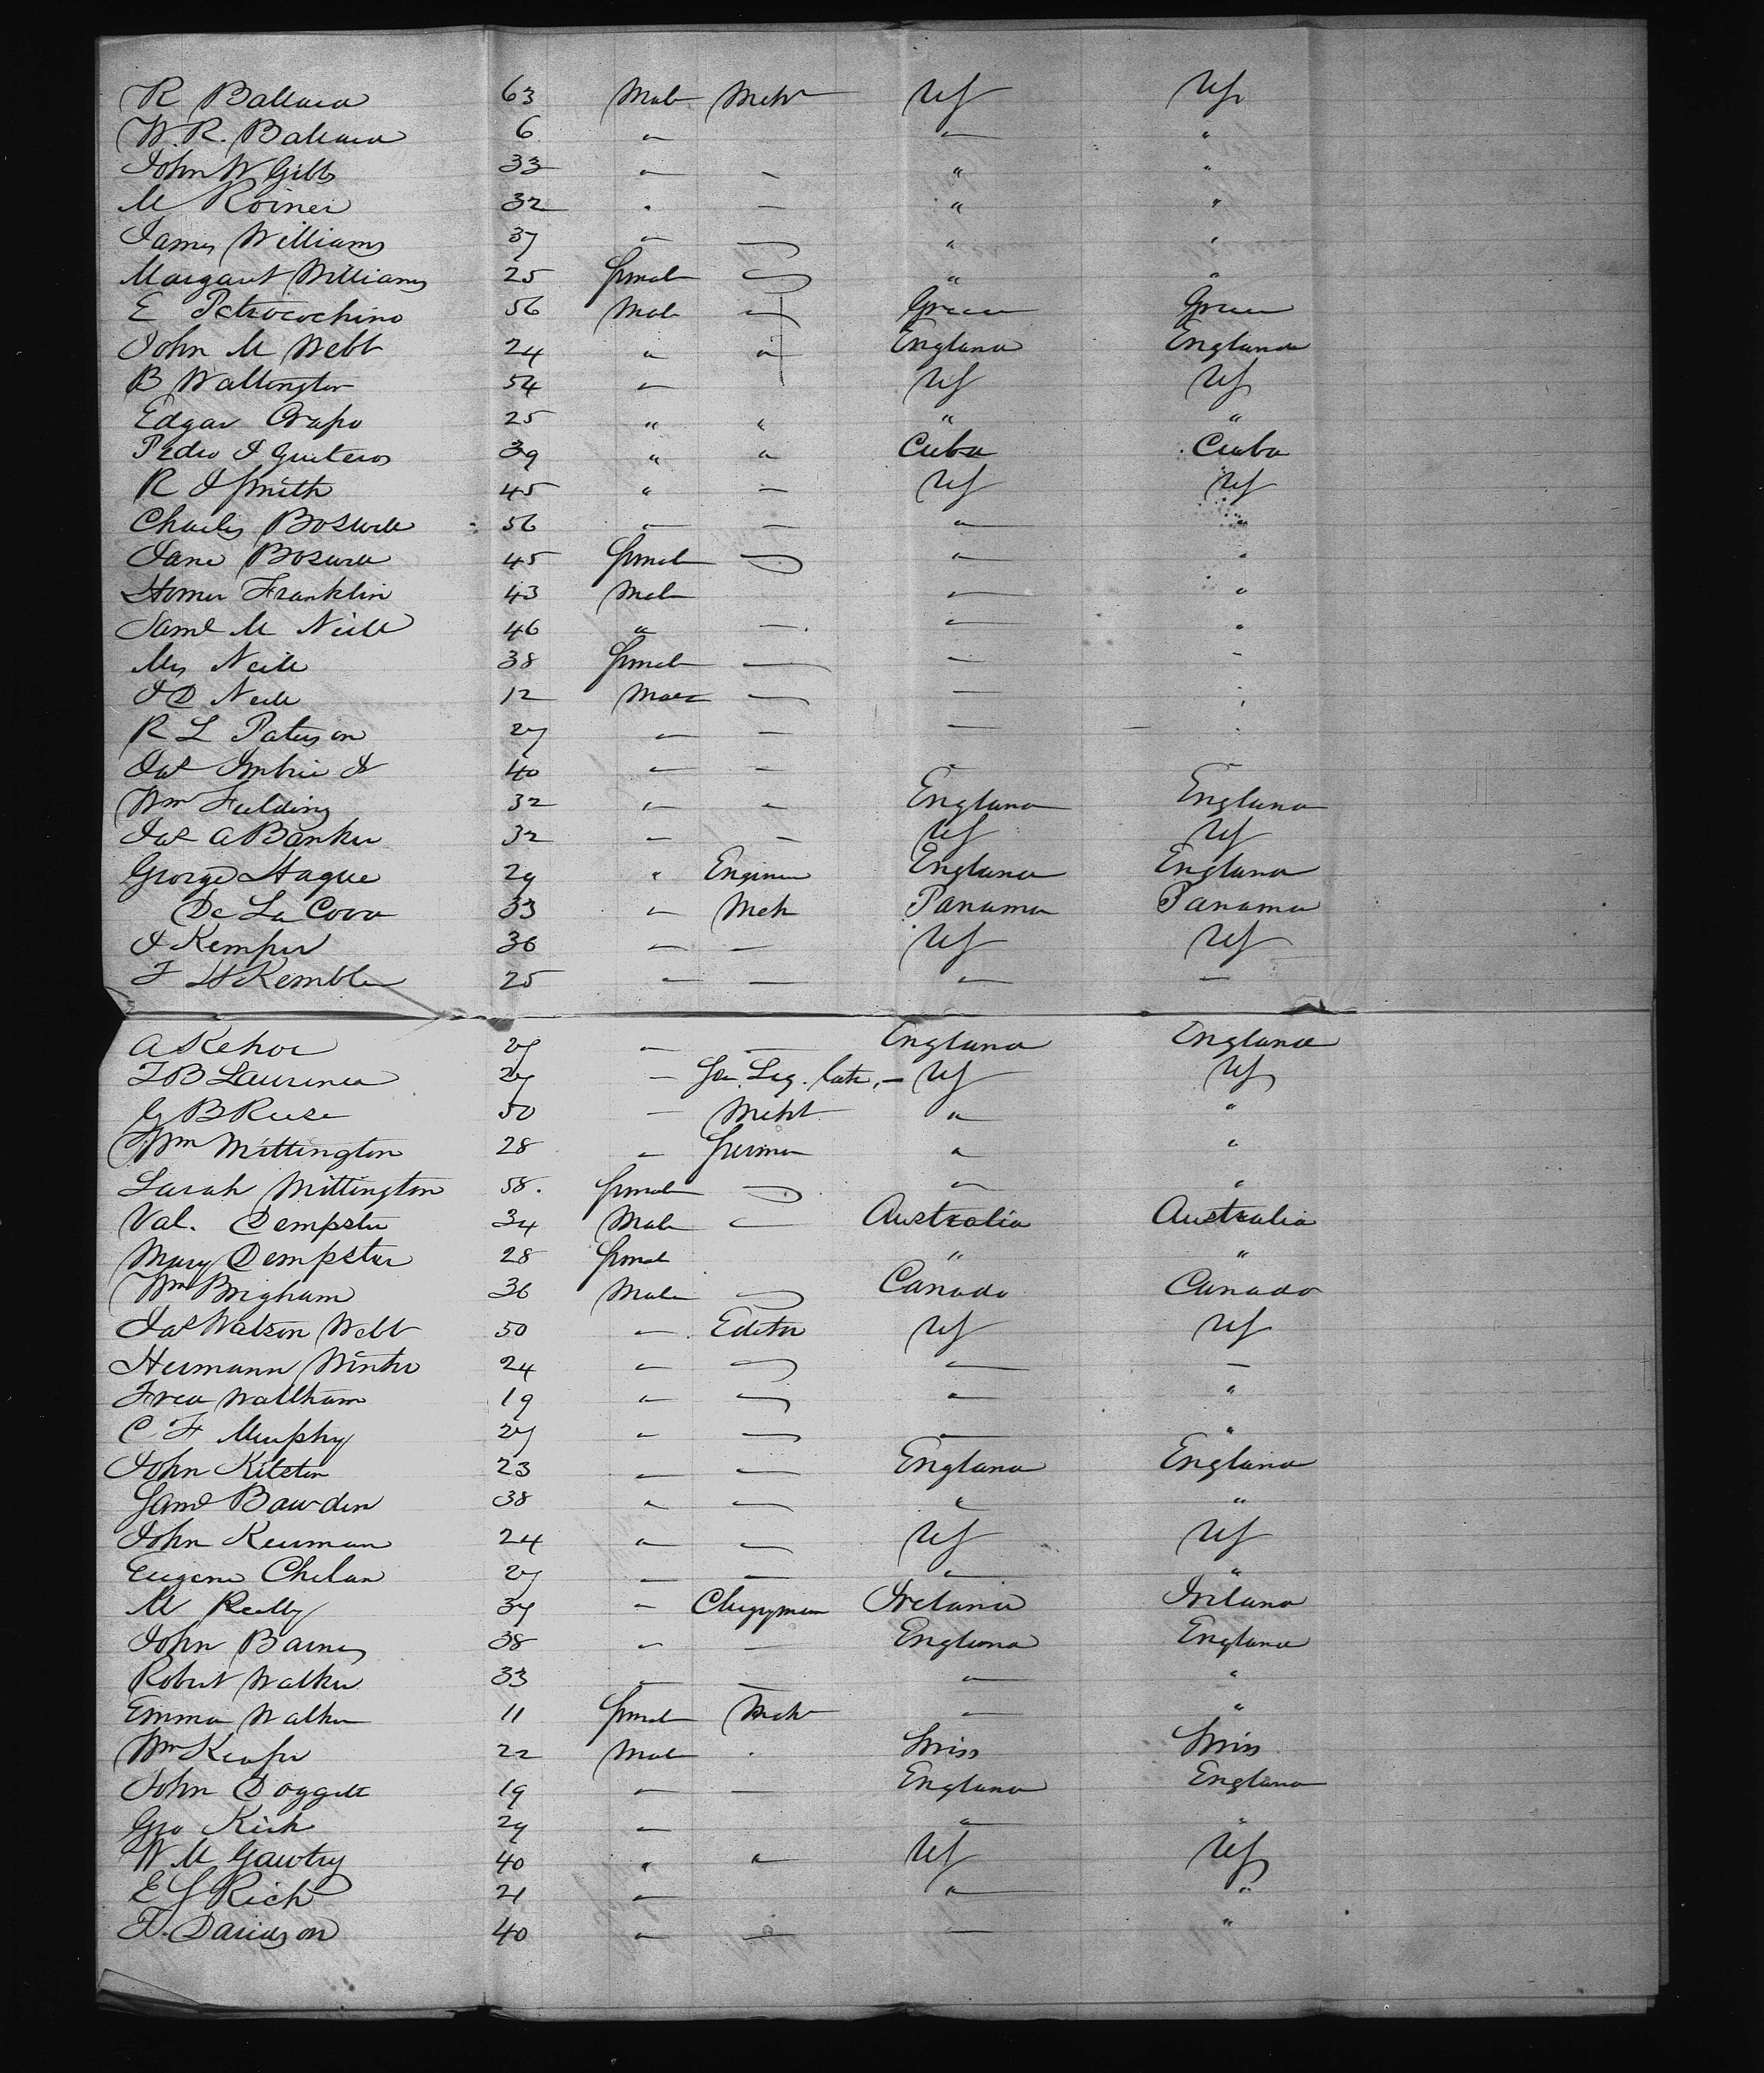 R Ballard 63 Male Mcht US US
W. R. Ballard 6 " " "
John W Gibbs 33 " - " "
M Roiner 32 " — " "
James Williams 37 " — " "
Margaret Williams 25 female — " "
E Petrocochino 56 Male " Greece Greece
John M Webb 24 " " England England
B Wallington 54 " US US
Edgar Crapo 25 " " " "
Pedro J Guiteras 39 " " Cuba Cuba
R J Smith 45 " — US US
Charles Boswell 56 " — " "
Jane Boswell 45 female — " "
Homer Franklin 43 Male " "
Saml M Neill 46 " — " "
Mrs Neill 38 female — — -
J D Neill 12 Male — — "
R L Paterson 27 " — — "
Jas Imbrie Jr 40 " — -
Wm Fielding 32 " " England England
Jas A Banker 32 — — US US
George Hague 29 " Engineer England England
De La Cova 33 " Mch Panama Panama
J Kemper 36 — — US US
F H Kemble 25 — — " —
A Kehoe 27 — — England England
T B Laurence 27 — Leg. US US
G B Reese 50 — Mcht " "
Wm Mittington 28 " " "
Sarah Mittington 58. female — " "
Val. Dempster 34 Male — Australia Australia
Mary Dempster 28 female " "
Wm Brigham 36 Male — Canada Canada
Jas Watson Webb 50 " Editor US US
Hermann Winter 24 " — " —
Fred Waltham 19 " — " "
C F Murphy 27 " — — "
John Kilston 23 — — England England
Saml Bawden 38 " — " "
John Kewman 24 " — US US
Eugene Chelan 27 — — " "
M Reilly 37 — Clergyman Ireland Ireland
John Barnes 38 " — England England
Robert Walker 33 — — " "
Emma Walker 11 female Mcht " "
Wm Keafer 22 Male " Swiss Swiss
John Doggett 19 " — England England
Geo Kirk 29 " " "
W M Gawtry 40 " " US US
E S Rich 21 " " "
T. Davidson 40 " — — "